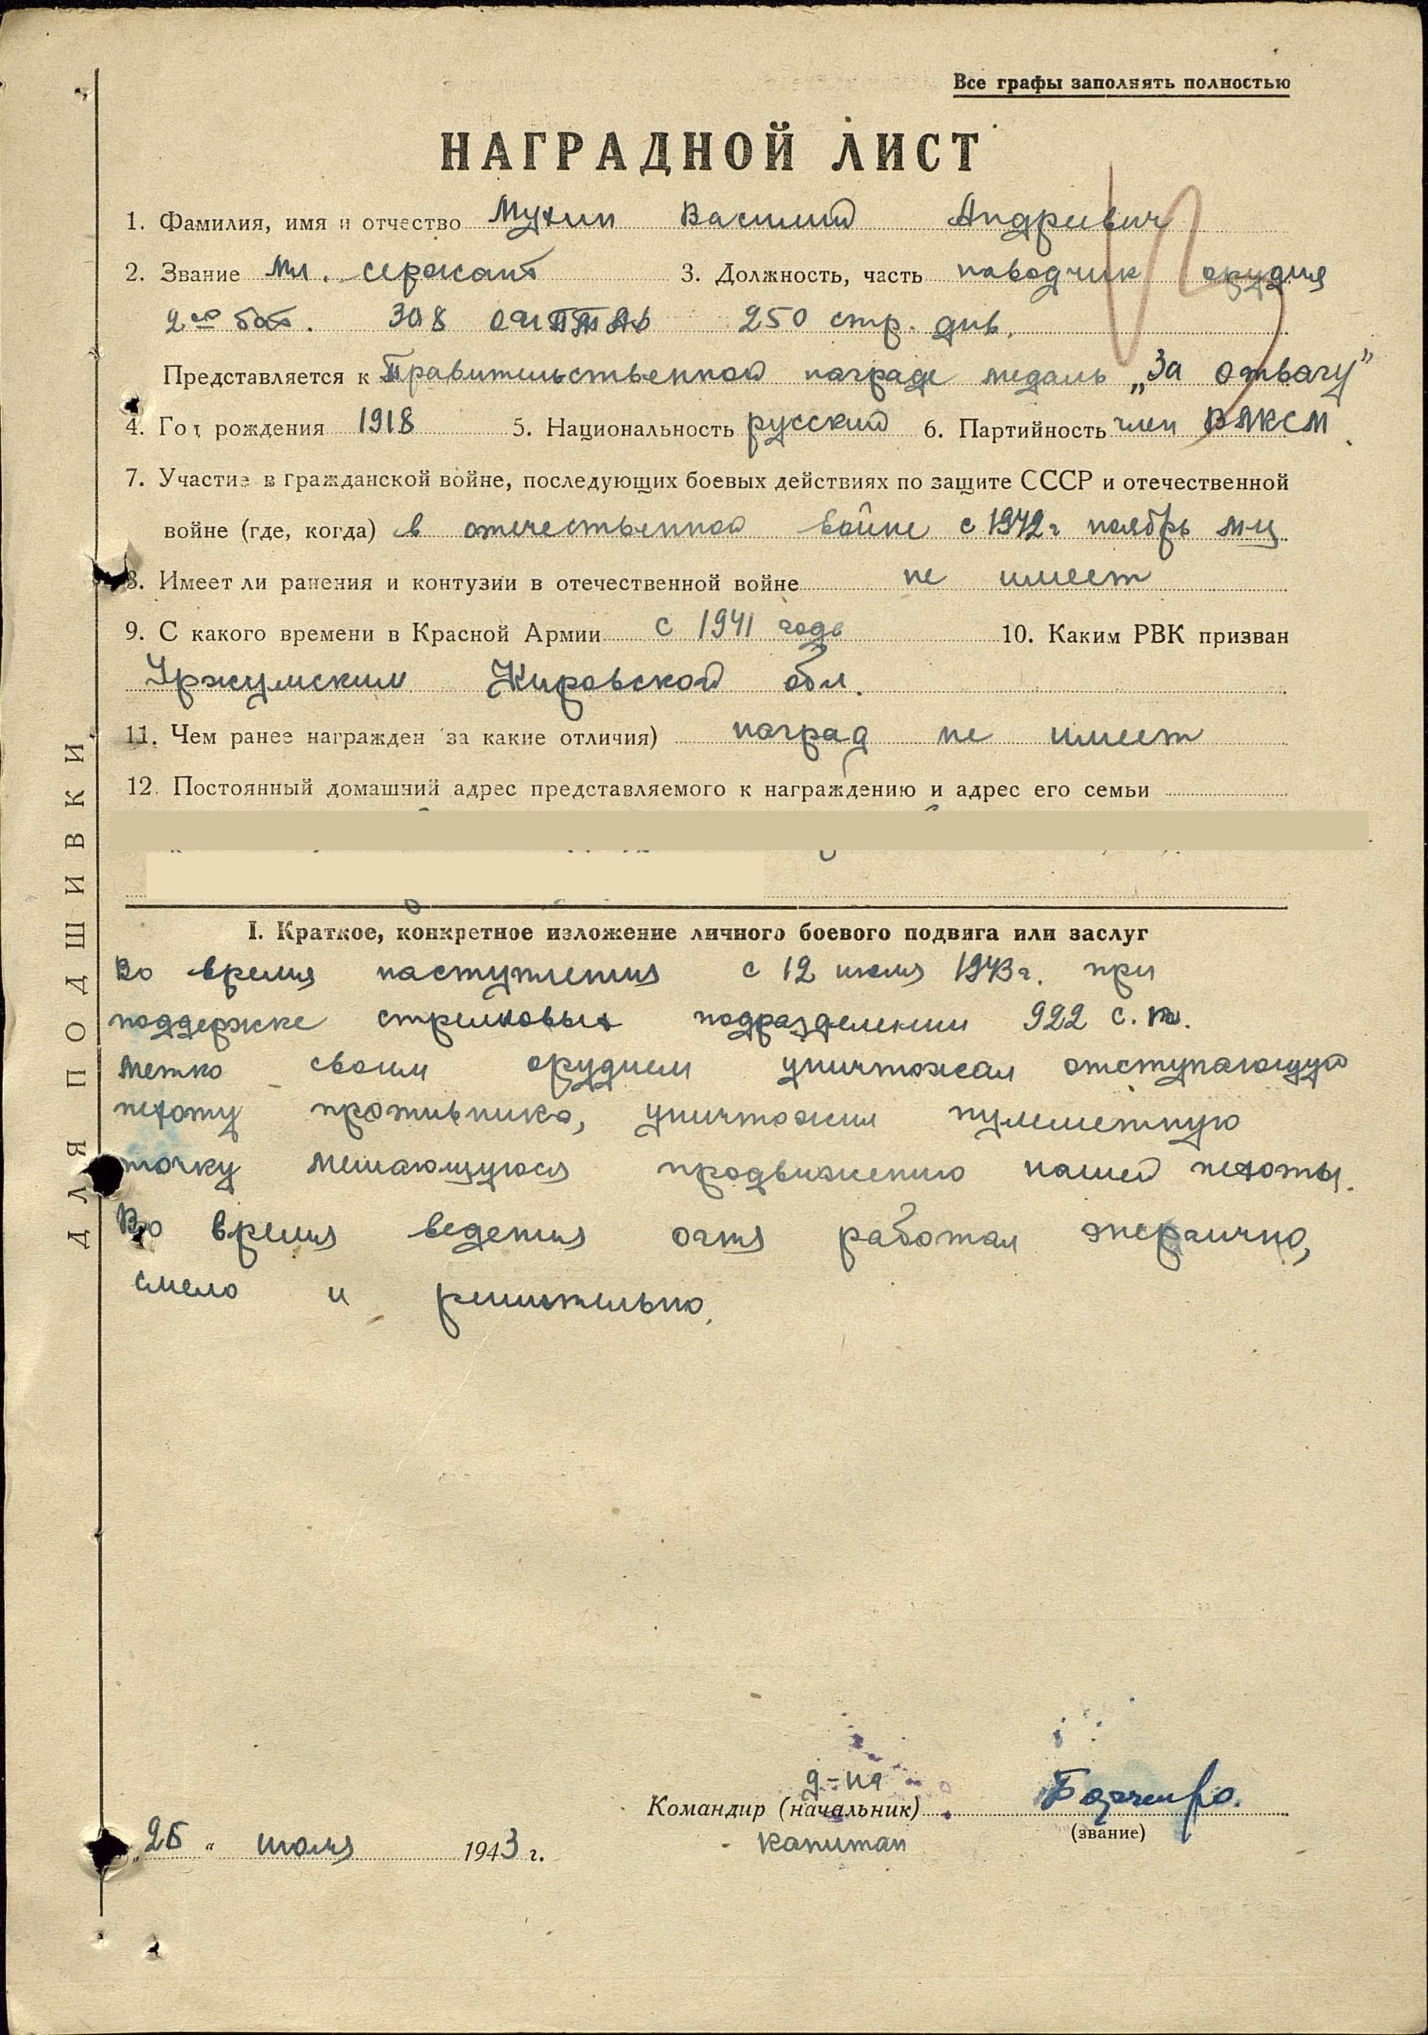 Все графы заполнять полностью
НАГРАДНОЙ ЛИСТ
1. Фамилия, имя и отчество Мухин Василий Андреевич
2. Звание мл. сержант 3. Должность, часть наводчик орудия
2ой бат. 308 250 стр. див.
Представляется к Правительственной награде медаль „За отвагу"
4. Год рождения 1918 5. Национальность русский 6. Партийность член ВЛКСМ.
7. Участие в гражданской войне, последующих боевых действиях по защите СССР и отечественной
войне (где, когда) в отечественной войне с 1942 г ноябрь м-ц
8. Имеет ли ранения и контузии в отечественной войне не имеет
9. С какого времени в Красной Армии с 1941 года 10. Каким РВК призван
Уржумским Кировской обл.
11. Чем ранее награжден за какие отличия) наград не имеет
12. Постоянный домашний адрес представляемого к награждению и адрес его семьи
I. Краткое, конкретное изложение личного боевого подвига или заслуг
Во время наступления с 12 июля 1943 г. при
поддержке стрелковых подразделении 922 с.п.
метко своим орудием уничтожал отступающую
пехоту противника, уничтожил пулеметную
точку мешающуюся продвижению нашей пехоты.
Во время ведения огня работал энергично,
смело и решительно.
д-на
Командир (начальник)
капитан
(звание)
„25 " июля 1943 г.
ДЛЯ ПОДШИВКИ